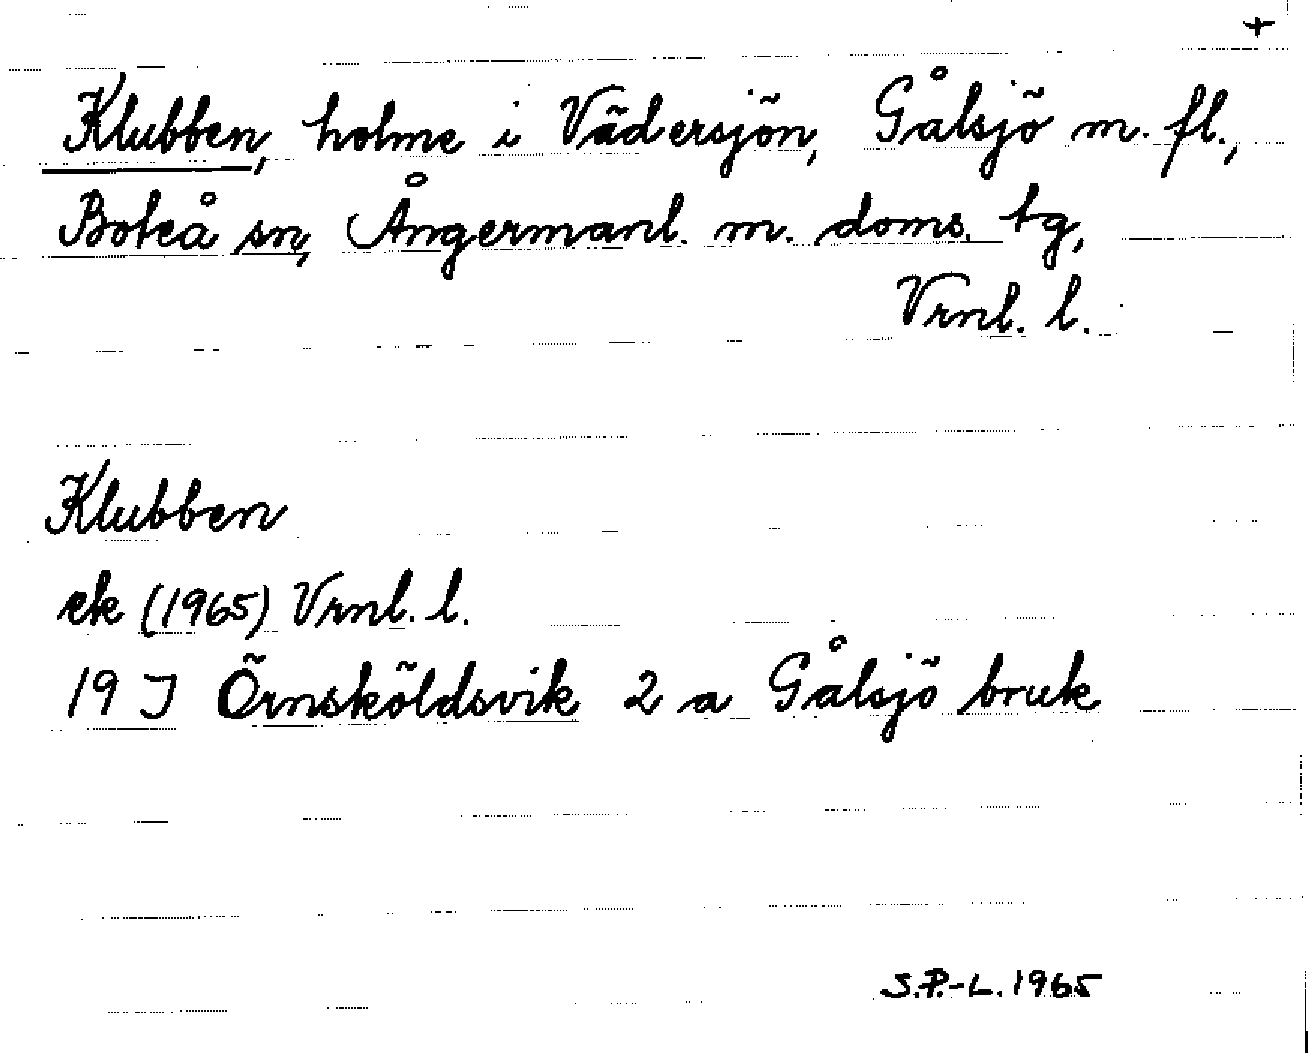 +
Klubben, holme i Vädersjön, Gålsjö m. fl.,
Boteå sn, Ångermanl. m. doms. tg,
Vrnl. l.
Klubben
ek (1965) Vrnl. l.
19 J Örnsköldsvik 2 a Gålsjö bruk
S.P.-L. 1965